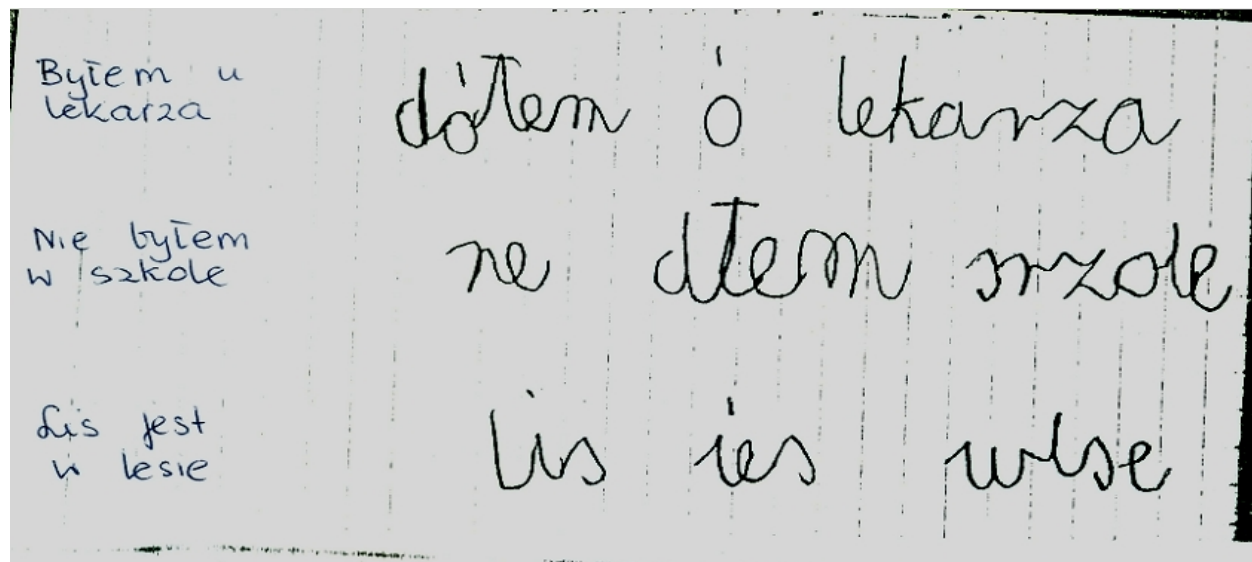 Byłem u
lekarza
dółem ó lekarza
Nie byłem
w szkole
ne dłem srzole
Lis jest
w lesie
Lis ies wlse